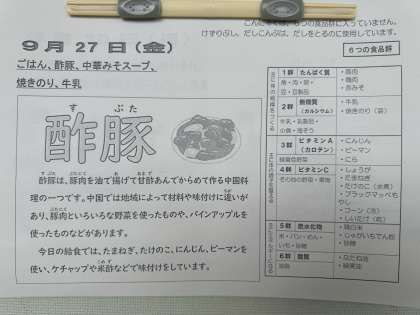 こんにゃくは、6つの食品群に入っていません。
けずりぶし、だしこんぶは、だしをとるのに使用しています。
9月27日(金)
ごはん、酢豚、中華みそスープ、
焼きのり、牛乳
すぶた
酢豚
酢豚は、豚肉を油で揚げて甘酢あんでからめて作る中国料
理の一つです。中国では地域によって材料や味付けに違いが
あり、豚肉といろいろな野菜を使ったものや、パインアップルを
使ったものなどがあります。
今日の給食では、たまねぎ、たけのこ、にんじん、ピーマンを
使い、ケチャップや米酢などで味付けをしています。
6つの食品群
1群 たんぱく質
魚・肉・卵・
豆・豆製品
・豚肉
・鶏肉
・赤みそ
2群 無機質
(カルシウム)
牛乳・乳製品・
小魚・海そう
・牛乳
・焼きのり(袋)
3群 ビタミンA
(カロテン)
緑黄色野菜
・にんじん
・ピーマン
・にら
4群 ビタミンC
その他の野菜・果物
・しょうが
・たまねぎ
・たけのこ(水煮)
・コーン(冷)
5群 炭水化物
米・パン・めん・
いも・砂糖
・精白米
・じゃがいもでん粉
・砂糖
6群 脂質
油脂
・なたね油